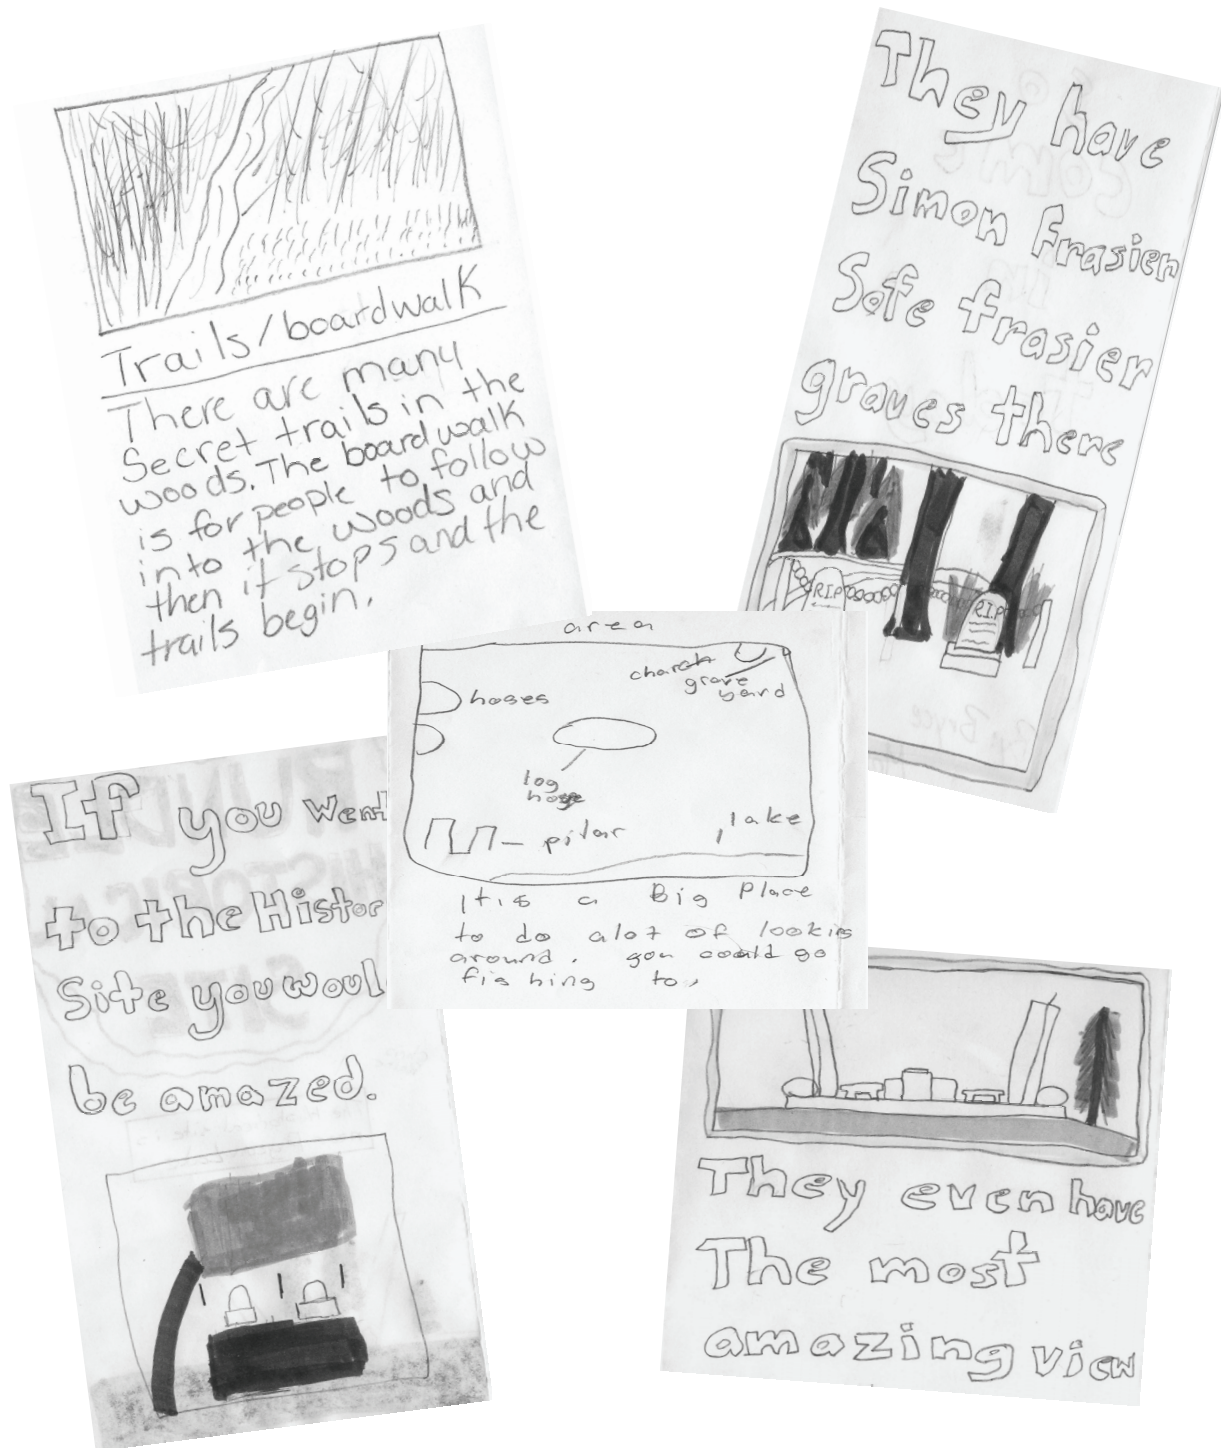 Trails/boardwalk
There are many
Secret trails in the
woods. The boardwalk
is for people to follow
into the woods and
then it stops and the
trails begin.
They have
Simon frasier
Safe frasier
graves there
R.I.P
R.I.P
area
hoses
grave
yard
log
pilar
lake
It is a Big Place
to do alot of lookin
around. you could go
fishing to,
If you went
to the Histor
Site you woul
be amazed.
They even have
The most
amazing view